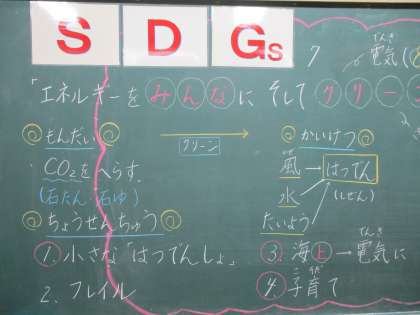 SDGs 7 電気(
「エネルギーをみんなに そして クリーン
もんだい
CO2をへらす。
(石たん・石ゆ)
クリーン
かいけつ
風 → はつでん
水
たいよう
(しぜん)
ちょうせんちゅう
1. 小さな「はつでんしょ」
2. フレイル
3. 海上 → 電気に
4. 子育て